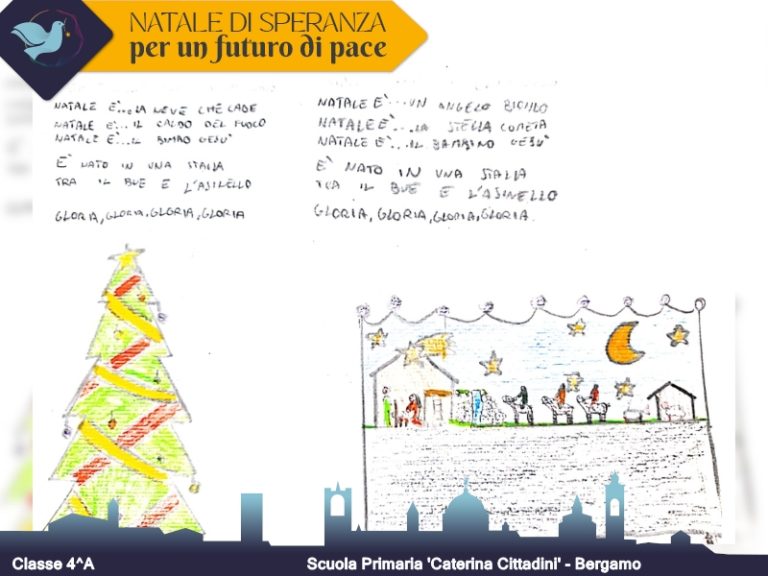 NATALE DI SPERANZA
per un futuro di pace
NATALE È...LA NEVE CHE CADE
NATALE È...IL CALDO DEL FUOCO
NATALE È...IL BIMBO GESU'
E' NATO IN UNA STALLA
TRA IL BUE E L'ASINELLO
GLORIA, GLORIA, GLORIA, GLORIA
NATALE E'...UN ANGELO
NATALE E'...LA STELLA COMETA
NATALE E'...IL BAMBINO GESU'
E' NATO IN UNA STALLA
TRA IL BUE E L'ASINELLO
GLORIA, GLORIA, GLORIA, GLORIA.
Classe 4^A
Scuola Primaria 'Caterina Cittadini' - Bergamo